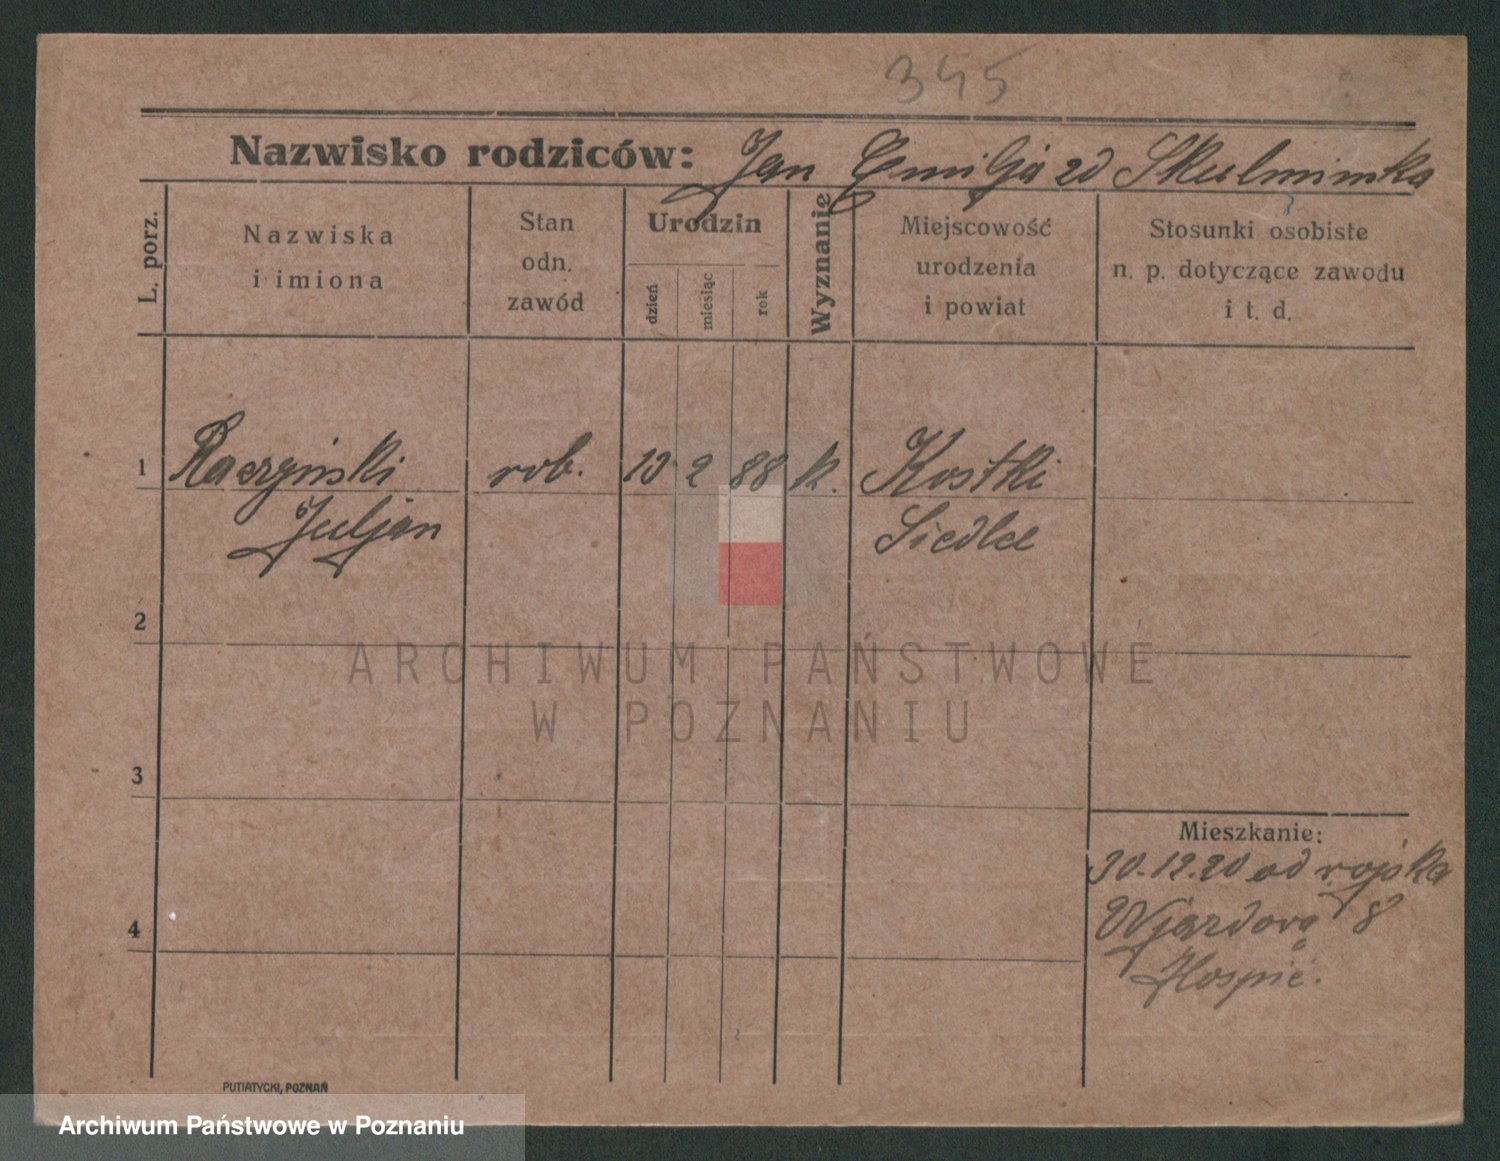 345
Nazwisko rodziców: Jan Emilja zd
L. porz.
Nazwiska
i imiona
Stan
odn.
zawód
Urodzin
dzień
miesiąc
rok
Wyznanie
Miejscowość
urodzenia
i powiat
Stosunki osobiste
n. p. dotyczące zawodu
i t. d.
1 Raczyński rob. 10 2 88 k. Kostki
Juljan Siedlce
2
ARCHIWUM PAŃSTWOWE
W POZNANIU
3
Mieszkanie:
30.12.20 od wojska
4 Wjazdowa 8
Hospic.
PUTIATYCKI, POZNAŃ
Archiwum Państwowe w Poznaniu